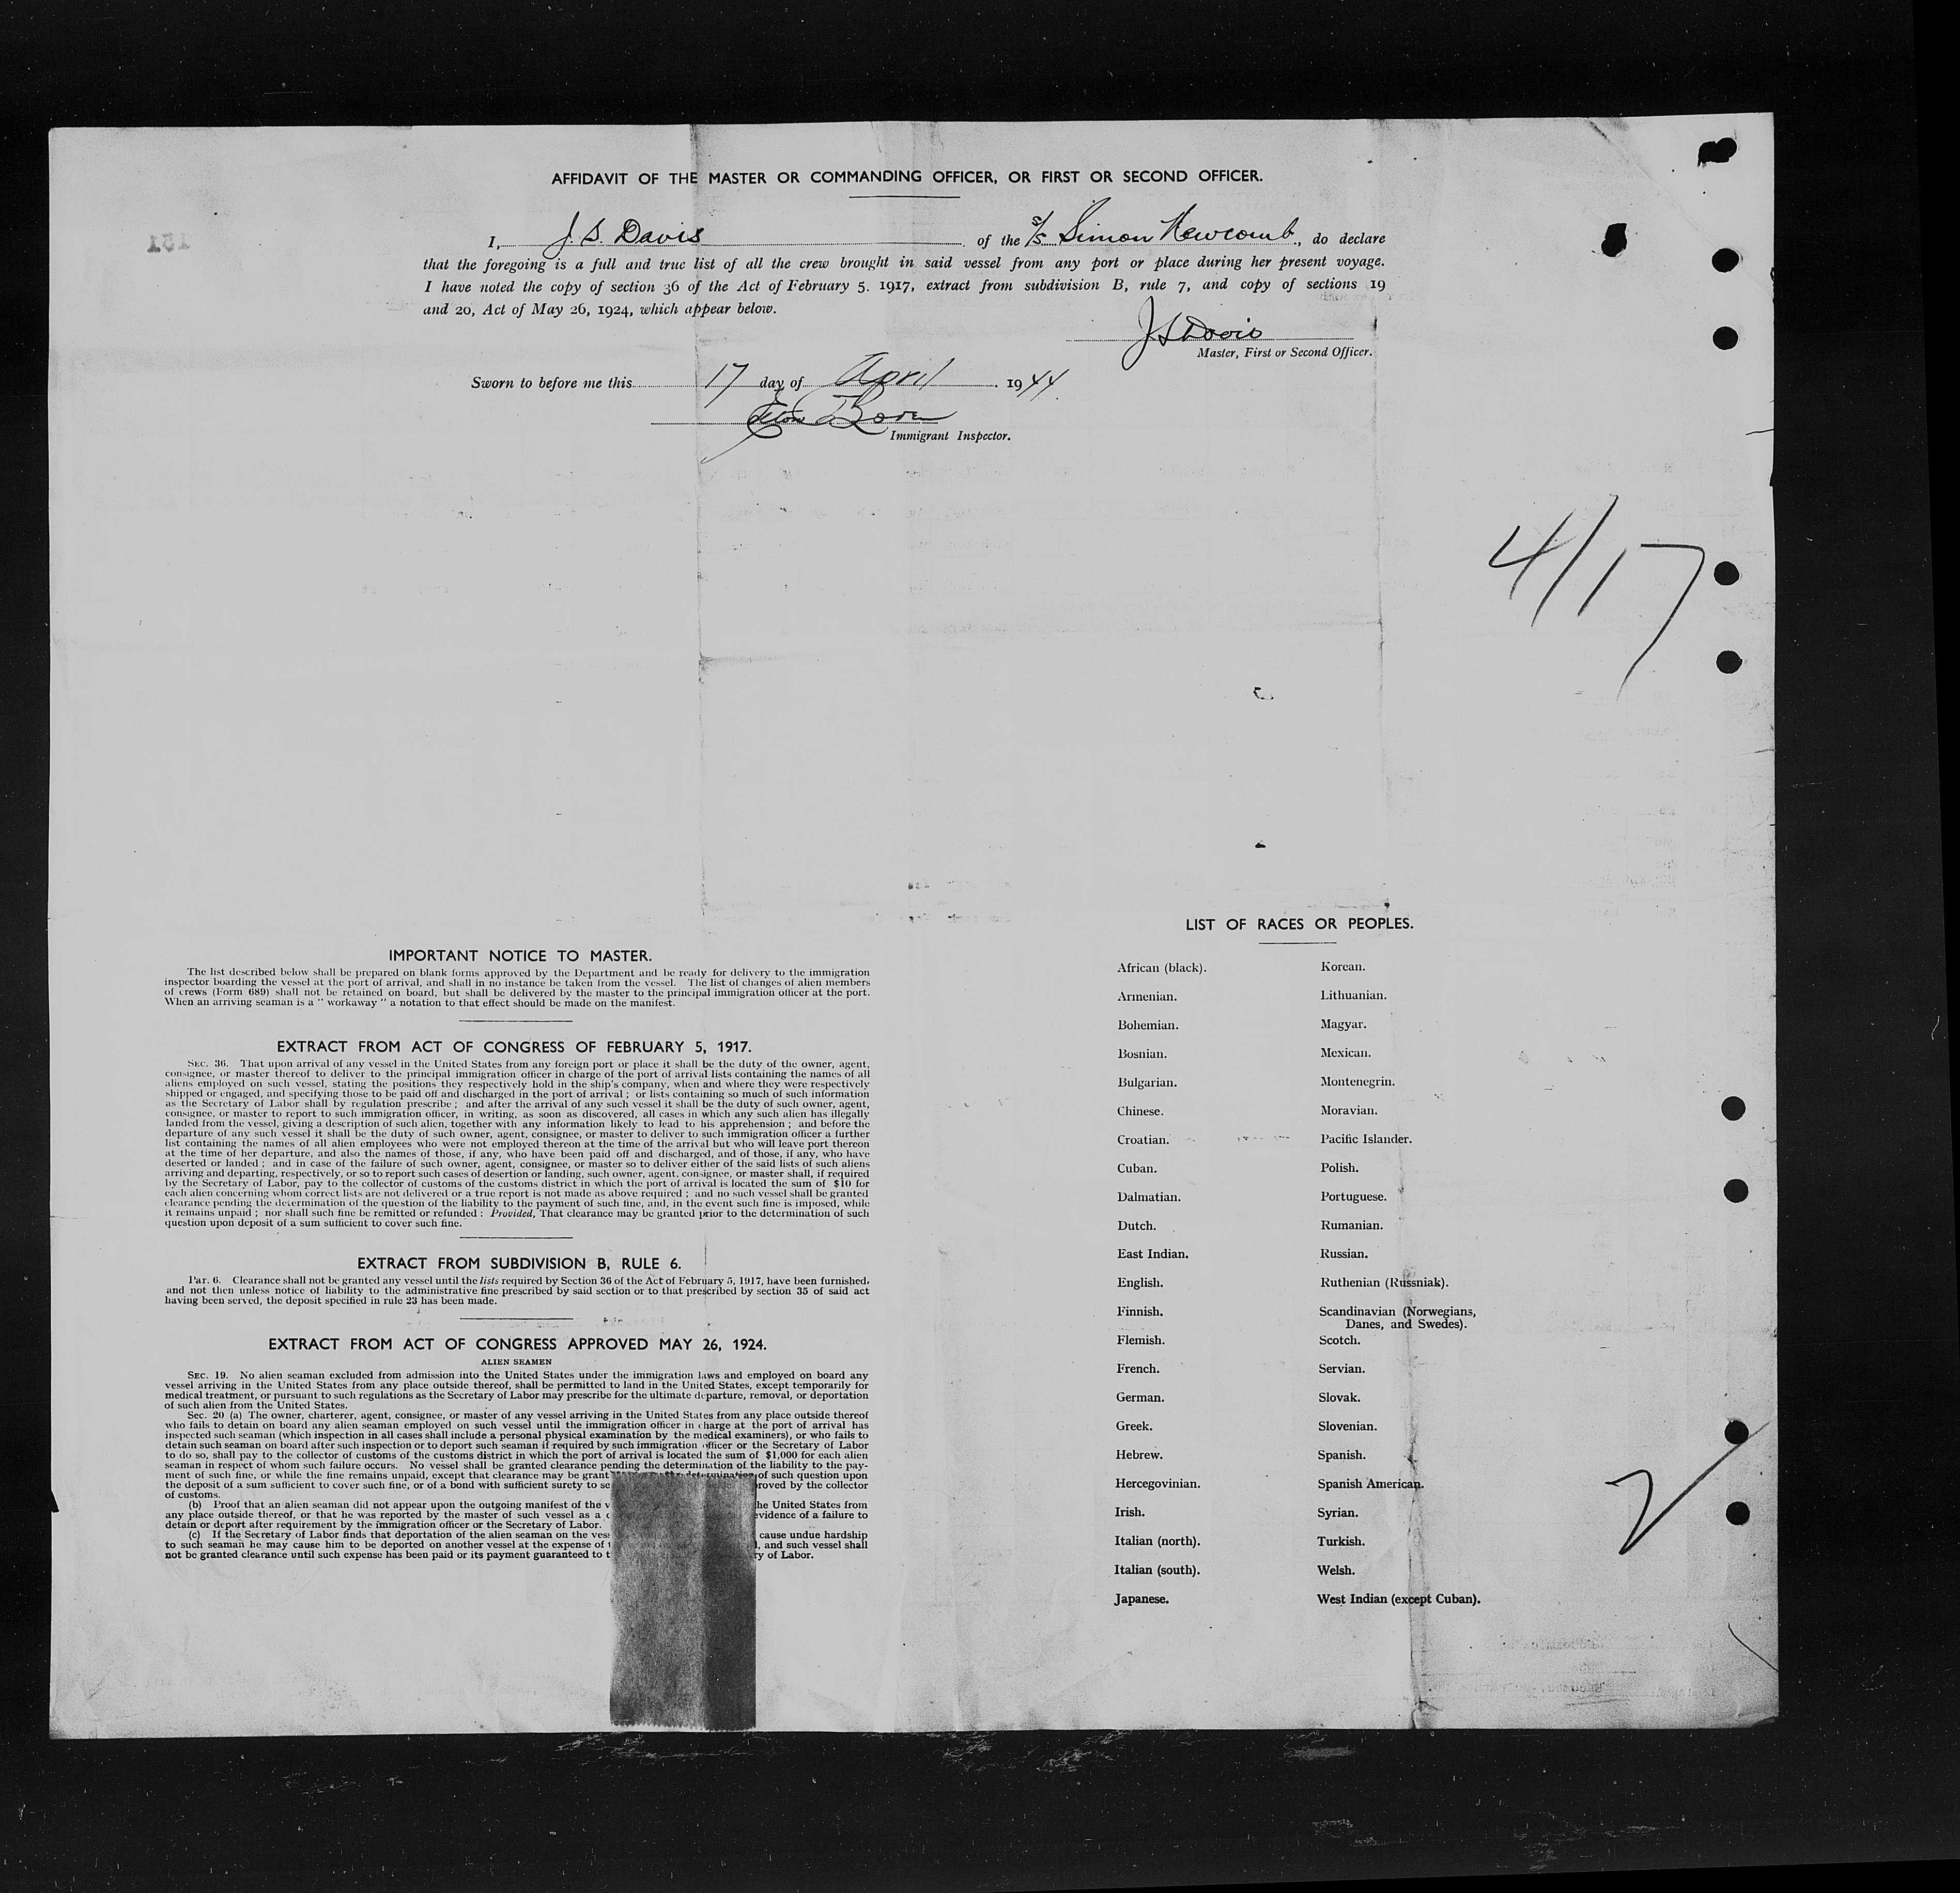 AFFIDAVIT OF THE MASTER OR COMMANDING OFFICER, OR FIRST OR SECOND OFFICER.
I, J. S. Davis of the s/s Simon Newcomb, do declare
that the foregoing is a full and true list of all the crew brought in said vessel from any port or place during her present voyage.
I have noted the copy of section 36 of the Act of February 5. 1917, extract from subdivision B, rule 7, and copy of sections 19
and 20, Act of May 26, 1924, which appear below.
J S Davis
Master, First or Second Officer.
Sworn to before me this 17 day of April . 1944.
Immigrant Inspector.
4/17
IMPORTANT NOTICE TO MASTER.
The list described below shall be prepared on blank forms approved by the Department and be ready for delivery to the immigration
inspector boarding the vessel at the port of arrival, and shall in no instance be taken from the vessel. The list of changes of alien members
of crews (Form 689) shall not be retained on board, but shall be delivered by the master to the principal immigration officer at the port.
When an arriving seaman is a " workaway " a notation to that effect should be made on the manifest.
EXTRACT FROM ACT OF CONGRESS OF FEBRUARY 5, 1917.
SEC. 36. That upon arrival of any vessel in the United States from any foreign port or place it shall be the duty of the owner, agent,
consignee, or master thereof to deliver to the principal immigration officer in charge of the port of arrival lists containing the names of all
aliens employed on such vessel, stating the positions they respectively hold in the ship's company, when and where they were respectively
shipped or engaged, and specifying those to be paid off and discharged in the port of arrival ; or lists containing so much of such information
as the Secretary of Labor shall by regulation prescribe ; and after the arrival of any such vessel it shall be the duty of such owner, agent,
consignee, or master to report to such immigration officer, in writing, as soon as discovered, all cases in which any such alien has illegally
landed from the vessel, giving a description of such alien, together with any information likely to lead to his apprehension ; and before the
departure of any such vessel it shall be the duty of such owner, agent, consignee, or master to deliver to such immigration officer a further
list containing the names of all alien employees who were not employed thereon at the time of the arrival but who will leave port thereon
at the time of her departure, and also the names of those, if any, who have been paid off and discharged, and of those, if any, who have
deserted or landed ; and in case of the failure of such owner, agent, consignee, or master so to deliver either of the said lists of such aliens
arriving and departing, respectively, or so to report such cases of desertion or landing, such owner, agent, consignee, or master shall, if required
by the Secretary of Labor, pay to the collector of customs of the customs district in which the port of arrival is located the sum of $10 for
each alien concerning whom correct lists are not delivered or a true report is not made as above required ; and no such vessel shall be granted
clearance pending the determination of the question of the liability to the payment of such fine, and, in the event such fine is imposed, while
it remains unpaid ; nor shall such fine be remitted or refunded : Provided, That clearance may be granted prior to the determination of such
question upon deposit of a sum sufficient to cover such fine.
EXTRACT FROM SUBDIVISION B, RULE 6.
Par. 6. Clearance shall not be granted any vessel until the lists required by Section 36 of the Act of February 5, 1917, have been furnished,
and not then unless notice of liability to the administrative fine prescribed by said section or to that prescribed by section 35 of said act
having been served, the deposit specified in rule 23 has been made.
EXTRACT FROM ACT OF CONGRESS APPROVED MAY 26, 1924.
ALIEN SEAMEN
SEC. 19. No alien seaman excluded from admission into the United States under the immigration laws and employed on board any
vessel arriving in the United States from any place outside thereof, shall be permitted to land in the United States, except temporarily for
medical treatment, or pursuant to such regulations as the Secretary of Labor may prescribe for the ultimate departure, removal, or deportation
of such alien from the United States.
Sec. 20 (a) The owner, charterer, agent, consignee, or master of any vessel arriving in the United States from any place outside thereof
who fails to detain on board any alien seaman employed on such vessel until the immigration officer in charge at the port of arrival has
inspected such seaman (which inspection in all cases shall include a personal physical examination by the medical examiners), or who fails to
detain such seaman on board after such inspection or to deport such seaman if required by such immigration officer or the Secretary of Labor
to do so, shall pay to the collector of customs of the customs district in which the port of arrival is located the sum of $1,000 for each alien
seaman in respect of whom such failure occurs. No vessel shall be granted clearance pending the determination of the liability to the pay-
ment of such fine, or while the fine remains unpaid, except that clearance may be grant determination of such question upon
the deposit of a sum sufficient to cover such fine, or of a bond with sufficient surety to se roved by the collector
of customs.
(b) Proof that an alien seaman did not appear upon the outgoing manifest of the v he United States from
any place outside thereof, or that he was reported by the master of such vessel as a evidence of a failure to
detain or deport after requirement by the immigration officer or the Secretary of Labor.
(c) If the Secretary of Labor finds that deportation of the alien seaman on the vess cause undue hardship
to such seaman he may cause him to be deported on another vessel at the expense of , and such vessel shall
not be granted clearance until such expense has been paid or its payment guaranteed to t ry of Labor.
LIST OF RACES OR PEOPLES.
African (black).
Armenian.
Bohemian.
Bosnian.
Bulgarian.
Chinese.
Croatian.
Cuban.
Dalmatian.
Dutch.
East Indian.
English.
Finnish.
Flemish.
French.
German.
Greek.
Hebrew.
Hercegovinian.
Irish.
Italian (north).
Italian (south).
Japanese.
Korean.
Lithuanian.
Magyar.
Mexican.
Montenegrin.
Moravian.
Pacific Islander.
Polish.
Portuguese.
Rumanian.
Russian.
Ruthenian (Russniak).
Scandinavian (Norwegians,
Danes, and Swedes).
Scotch.
Servian.
Slovak.
Slovenian.
Spanish.
Spanish American.
Syrian.
Turkish.
Welsh.
West Indian (except Cuban).